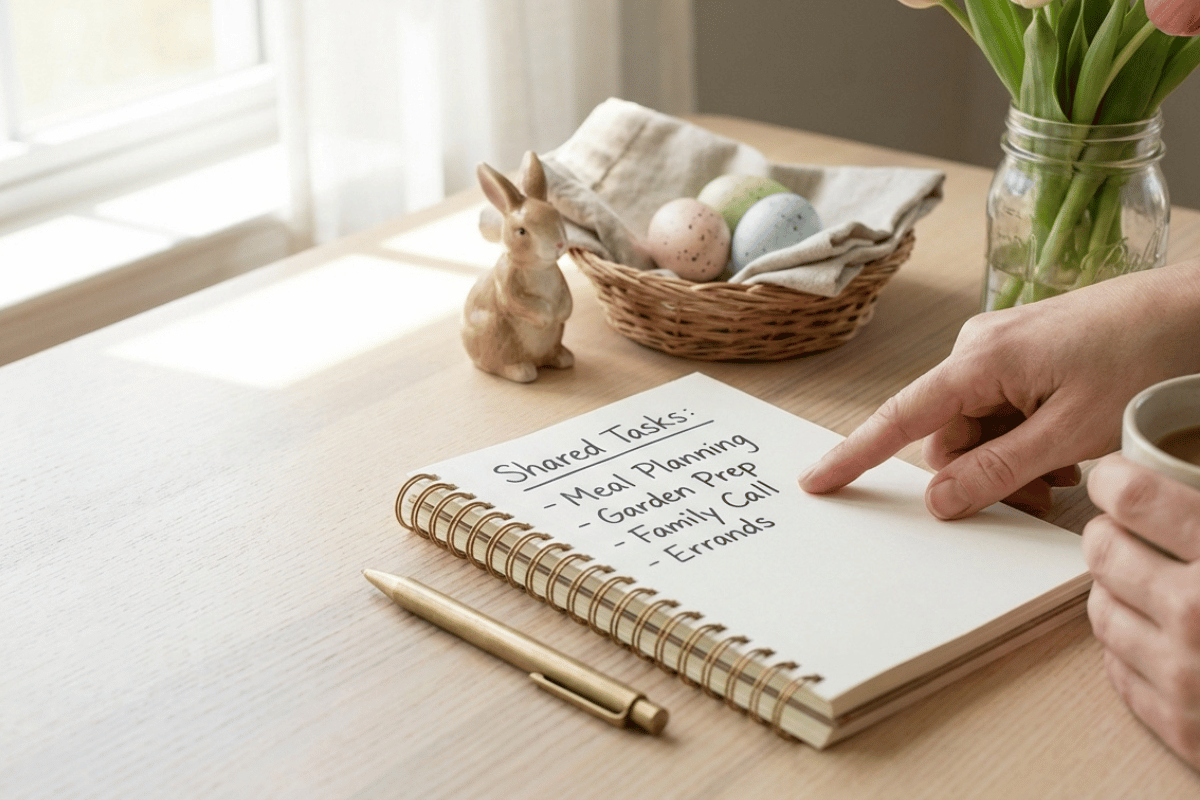 Shared Tasks:
- Meal Planning
- Garden Prep
- Family Call
- Errands